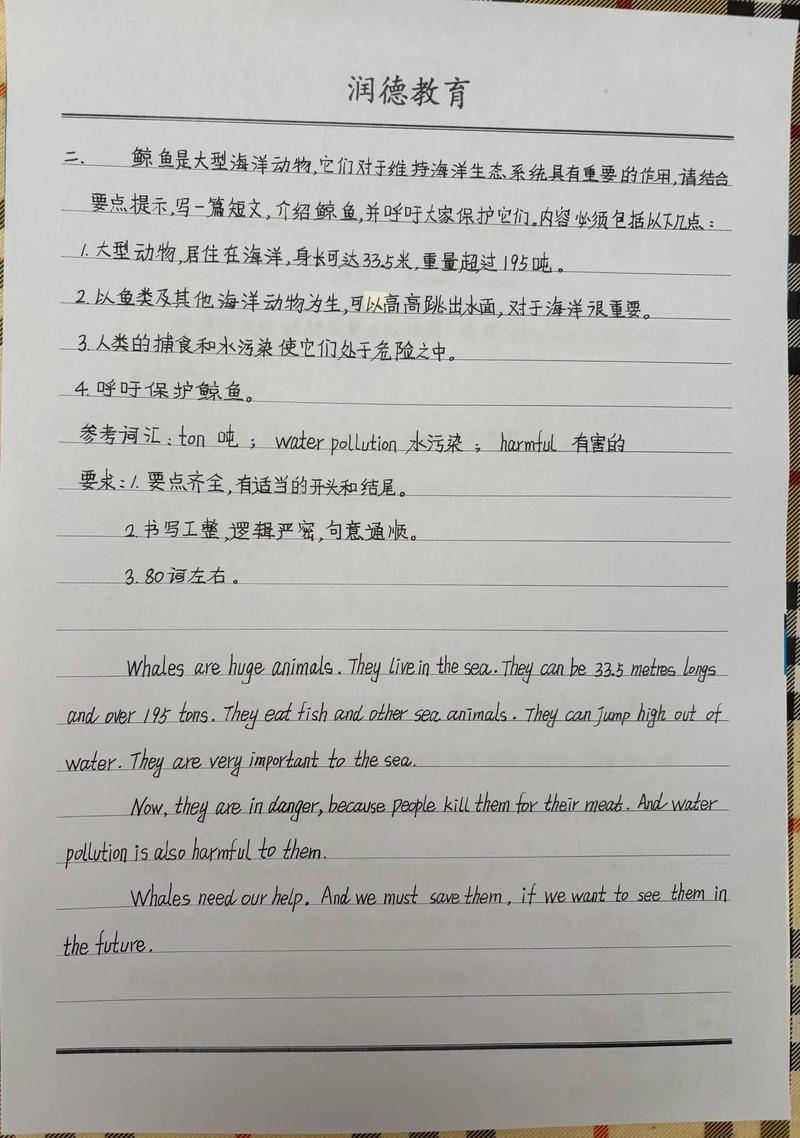 润德教育
二. 鲸鱼是大型海洋动物,它们对于维持海洋生态系统具有重要的作用,请结合
要点提示,写一篇短文,介绍鲸鱼,并呼吁大家保护它们。内容必须包括以下几点:
1. 大型动物,居住在海洋,身长可达33.5米,重量超过195吨。
2. 以鱼类及其他海洋动物为生,可以高高跳出水面,对于海洋很重要。
3. 人类的捕食和水污染使它们处于危险之中。
4. 呼吁保护鲸鱼。
参考词汇:ton 吨 ; water pollution 水污染 ; harmful 有害的
要求:1. 要点齐全,有适当的开头和结尾。
2. 书写工整,逻辑严密,句意通顺。
3. 80词左右。
Whales are huge animals. They live in the sea. They can be 33.5 metres longs
and over 195 tons. They eat fish and other sea animals. They can jump high out of
water. They are very important to the sea.
Now, they are in danger, because people kill them for their meat. And water
pollution is also harmful to them.
Whales need our help. And we must save them, if we want to see them in
the future.